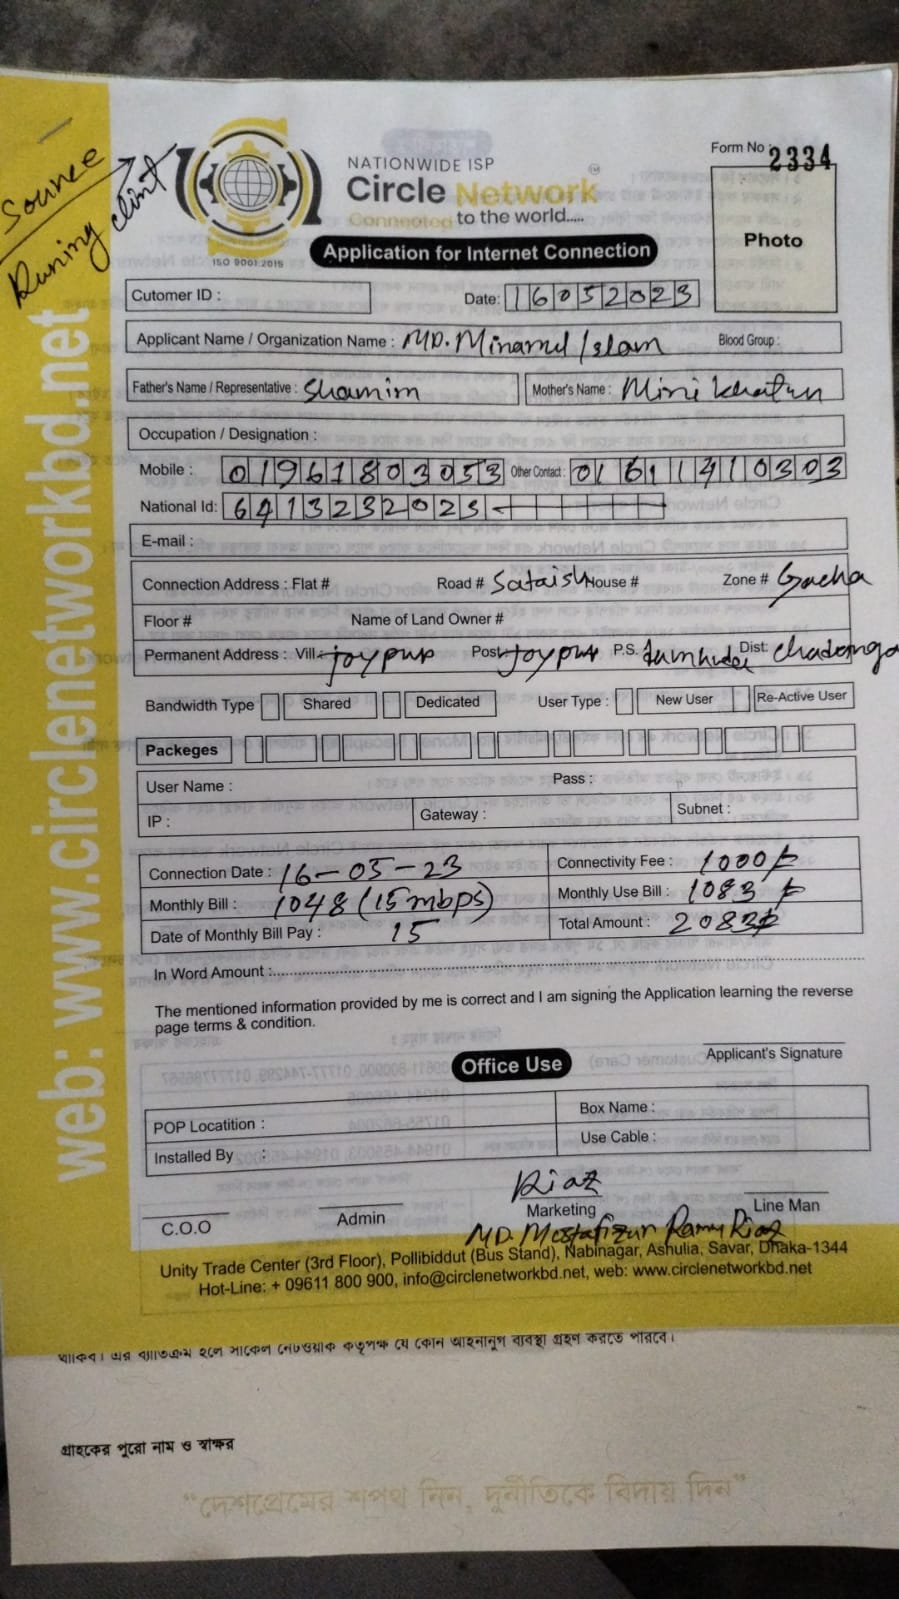 Source
Runing clint
NATIONWIDE ISP
Circle Network
Connected to the world.....
ISO 9001:2015
Form No 2334
Photo
Application for Internet Connection
Cutomer ID :
Date: 16052023
Applicant Name / Organization Name : MD. Minarul Islam Blood Group :
Father's Name / Representative : Shamim Mother's Name : Mini Khatun
Occupation / Designation :
Mobile : 01961803053 Other Contact : 01611410303
National Id: 6413232025
E-mail :
Connection Address : Flat # Road # Sataish House # Zone # Gacha
Floor # Name of Land Owner #
Permanent Address : Vill- Joypur Post- Joypur P.S. Dist:
Bandwidth Type Shared Dedicated User Type : New User Re-Active User
Packeges
User Name : Pass :
IP : Gateway : Subnet :
Connection Date : 16-05-23 Connectivity Fee : 1000/-
Monthly Bill : 1048 (15 mbps) Monthly Use Bill : 1083/-
Date of Monthly Bill Pay : 15 Total Amount : 2083/-
In Word Amount :
The mentioned information provided by me is correct and I am signing the Application learning the reverse
page terms & condition.
Applicant's Signature
Office Use
POP Locatition : Box Name :
Installed By : Use Cable :
Riaz
C.O.O Admin Marketing Line Man
MD. Mostafizur Riaz
Unity Trade Center (3rd Floor), Pollibiddut (Bus Stand), Nabinagar, Ashulia, Savar, Dhaka-1344
Hot-Line: + 09611 800 900, info@circlenetworkbd.net, web: www.circlenetworkbd.net
web: www.circlenetworkbd.net
থাকিব। এর ব্যতিক্রম হলে সার্কেল নেটওয়ার্ক কতৃপক্ষ যে কোন আইনানুগ ব্যবস্থা গ্রহণ করতে পারবে।
গ্রাহকের পুরো নাম ও স্বাক্ষর
“দেশপ্রেমের শপথ নিন, দুর্নীতিকে বিদায় দিন”